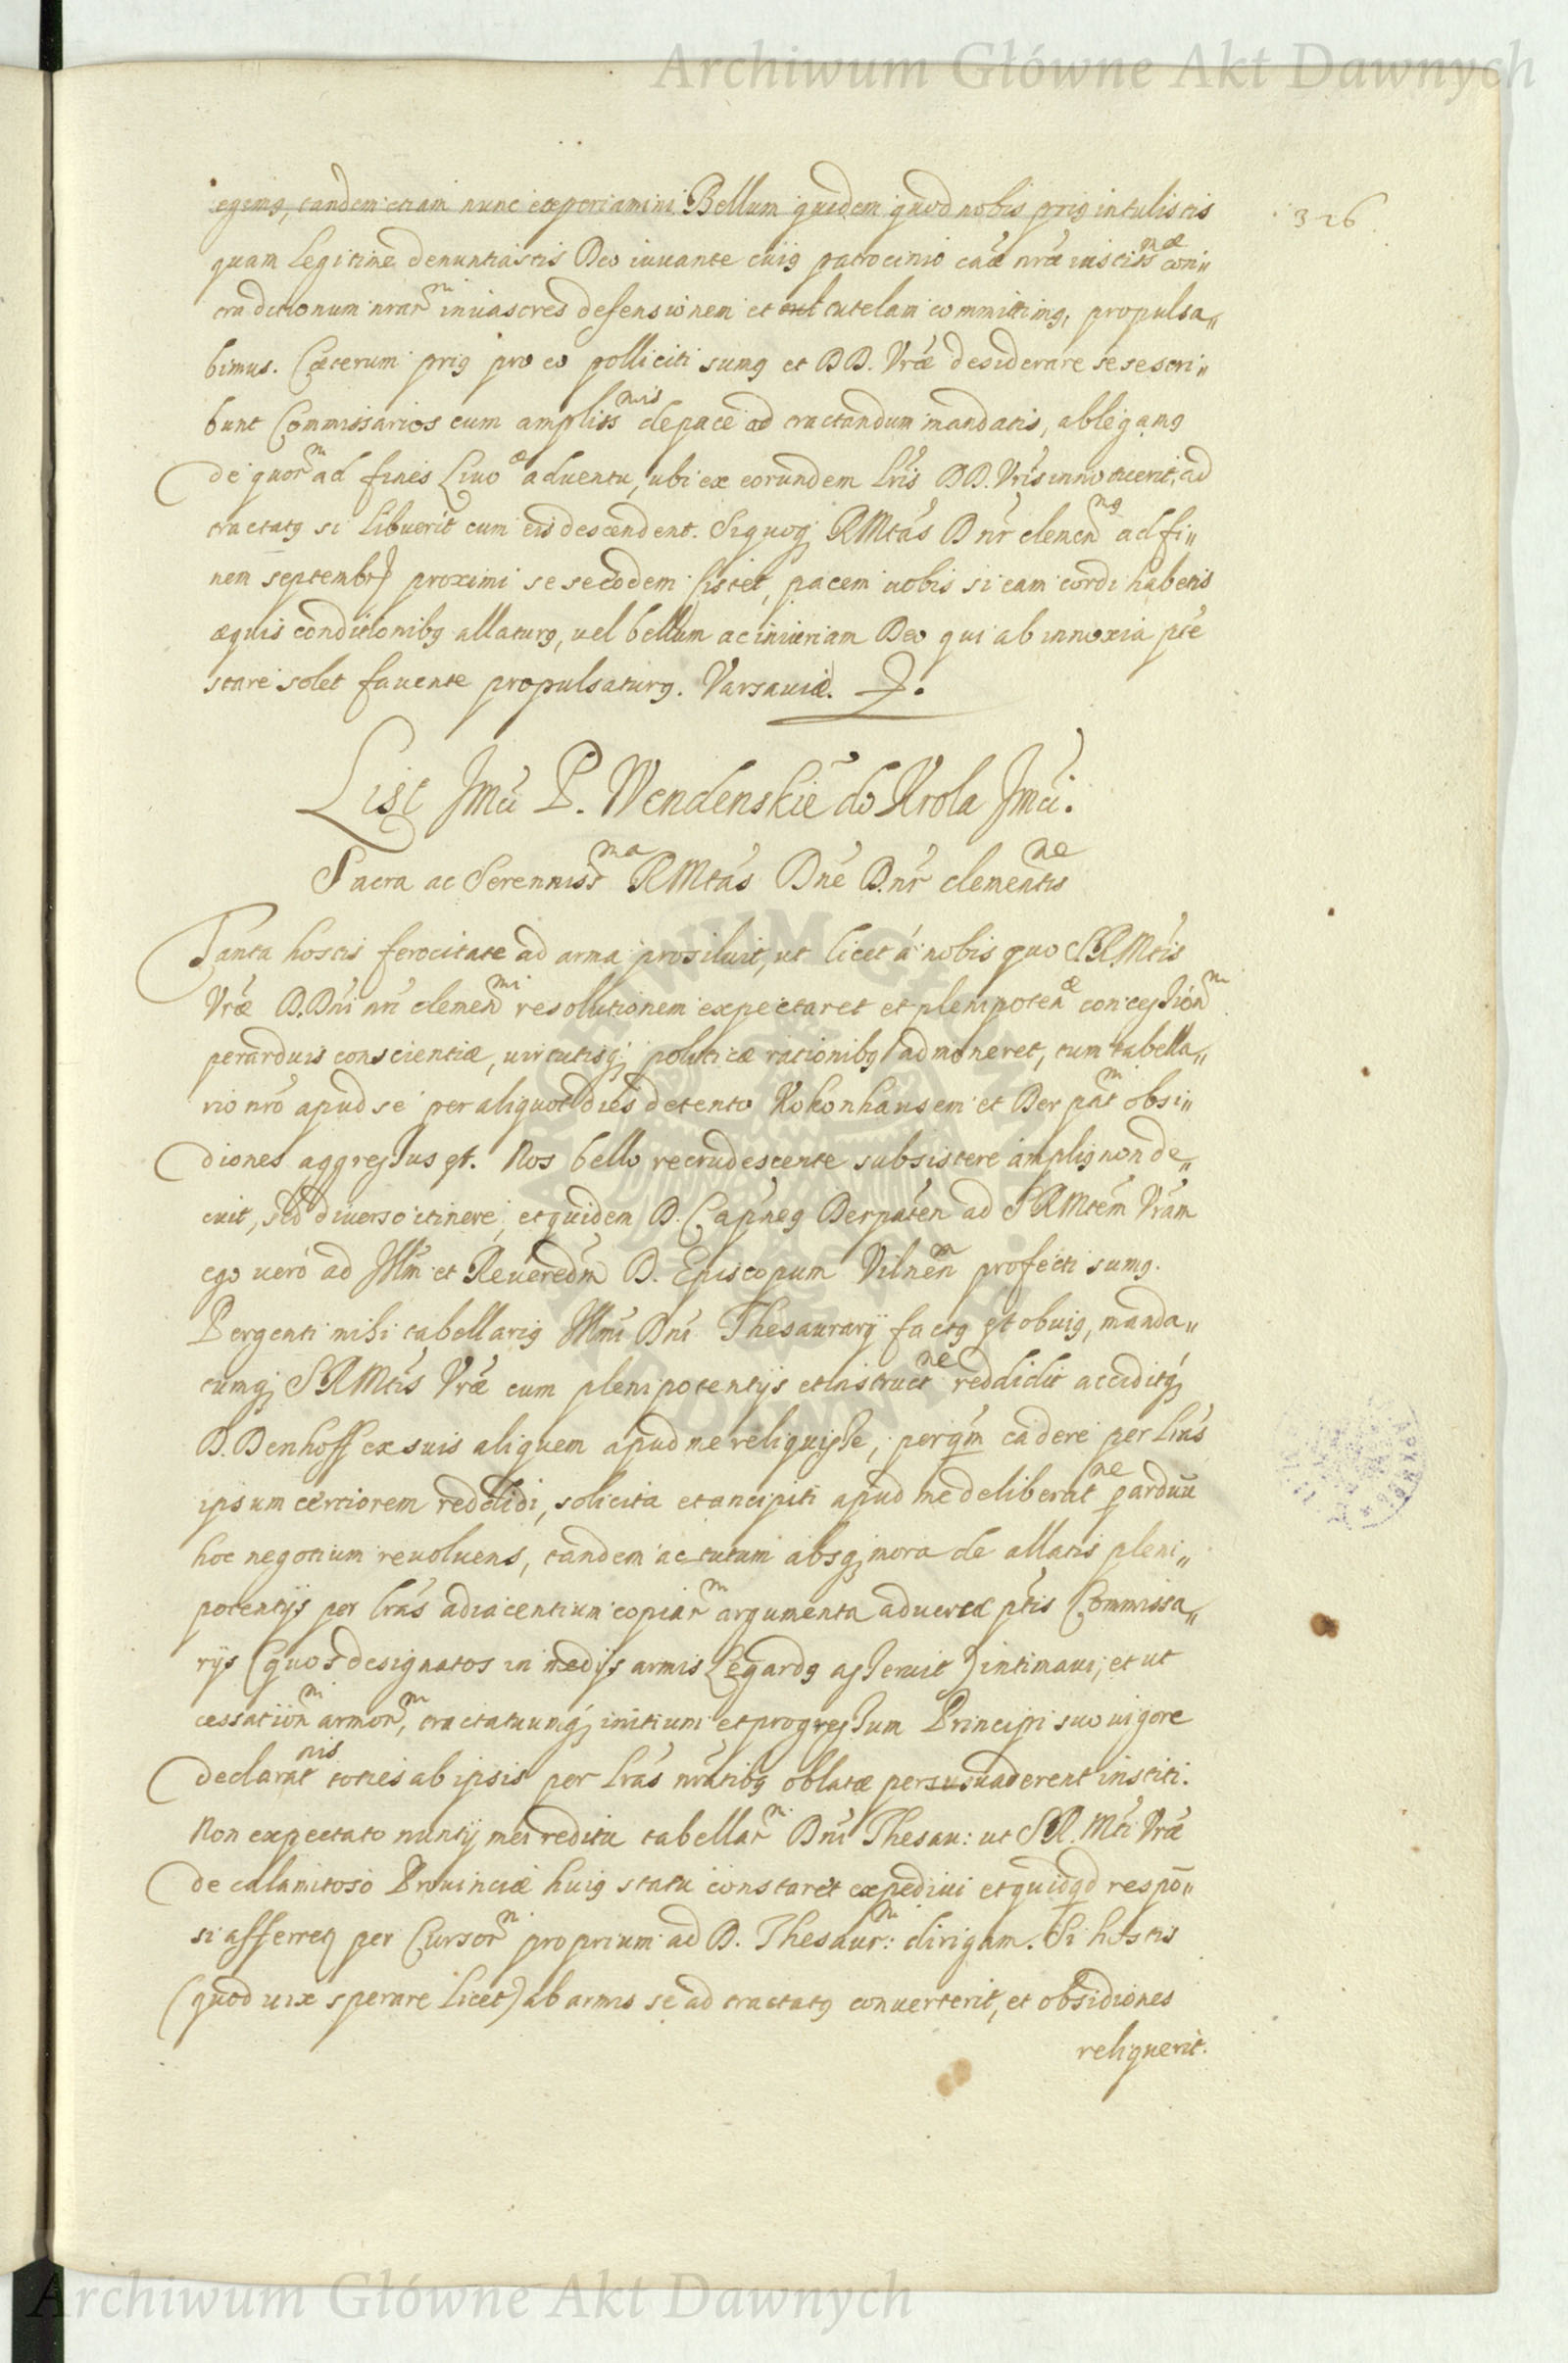 Archiwum Główne Akt Dawnych
326
egimꝰ, eandem etiam nunc experiamini Bellum quidem quod nobis priꝰ intulistis
quam legitime denuntiastis Deo iuuante cuiꝰ patrocinio cãã nrã iustissmæ con„
tra ditionum nrarm inuasores defensionem et tutelam committimꝰ, propulsa„
bimus. Cæterum priꝰ pro eo polliciti sumꝰ et DD. Vrã desiderare se se scri„
bunt Commissarios cum amplissmis de pace ad tractandum mandatis, ablegamꝰ
de quorm ad fines Liuoæ aduentu, ubi ex eorundem lris DD. Vris innotuerit, ad
tractatꝰ si libuerit cum eis descendent. Siquoq RMtas D nr clemenmꝰ ad fi„
nem septembr proximi se se eodem sistet, pacem uobis si eam cordi habetis
æquis conditionibꝰ allaturꝰ, uel bellum ac iniuriam Deo qui ab innoxia pte
stare solet fauente propulsaturꝰ. Varsauiæ.
List Jmci P. Wendenskieo do Krola Jmci.
Sacra ac Serennissma RMtas Dne D. nr clementisne
Tanta hostis ferocitate ad arma prosiluit, ut licet á nobis quo SRMtis
Vræ D. Dni nri clemenmi resolutionem expectaret et plenipotenæ concessionm
perarduis conscientiæ, uirtutisq politicæ rationibꝰ admoneret, tum tabella„
rio nro apud se per aliquot dies detento Kokonhausem et Derpatm obsi„
diones aggressus est. Nos bello recrudescente subsistere ampliꝰ non de„
cuit, sed diuerso itinere, et quidem D. Capneꝰ Derpaten ad SRMtem Vram
ego uero ad Illm et Reueredm D. Episcopum Vilnen profecti sumꝰ.
Pergenti mihi tabellariꝰ Illmi Dni Thesaurarij factꝰ est obuiꝰ, manda„
tumq SRMtis Vræ cum plenipotentijs et instructne reddidit acciditq
D. Denhoff ex suis aliquem apud me reliquisse, per qm ea de re per lras
ipsum certiorem reddidi, solicita et ancipiti apud me deliberatne parduu
hoc negotium reuoluens, tandem ac tutum absq mora de allatis pleni„
potentijs per lras adiacentium copiarm argumenta aduersæ ptis Commissa„
rijs (quos designatos in medijs armis Legardꝰ asseruit) intimaui, et ut
cessationm armorm, tractatuumq initium et progressum Principi suo uigore
declaratnis toties ab ipsis per lras nratibꝰ oblatæ persuaderent institi.
Non expectato nuntij mei reditu tabellarm Dni Thesau: ut SR. Mti Vræ
de calamitoso Prouinciæ huiꝰ statu constaret expediui et quidqd respo„
si afferret per Cursorm proprium ad D. Thesaurm: dirigam. Si hostis
(quod uix sperare licet) ab armis se ad tractatꝰ conuerterit, et obsidiones
reliquerit.
Archiwum Główne Akt Dawnych